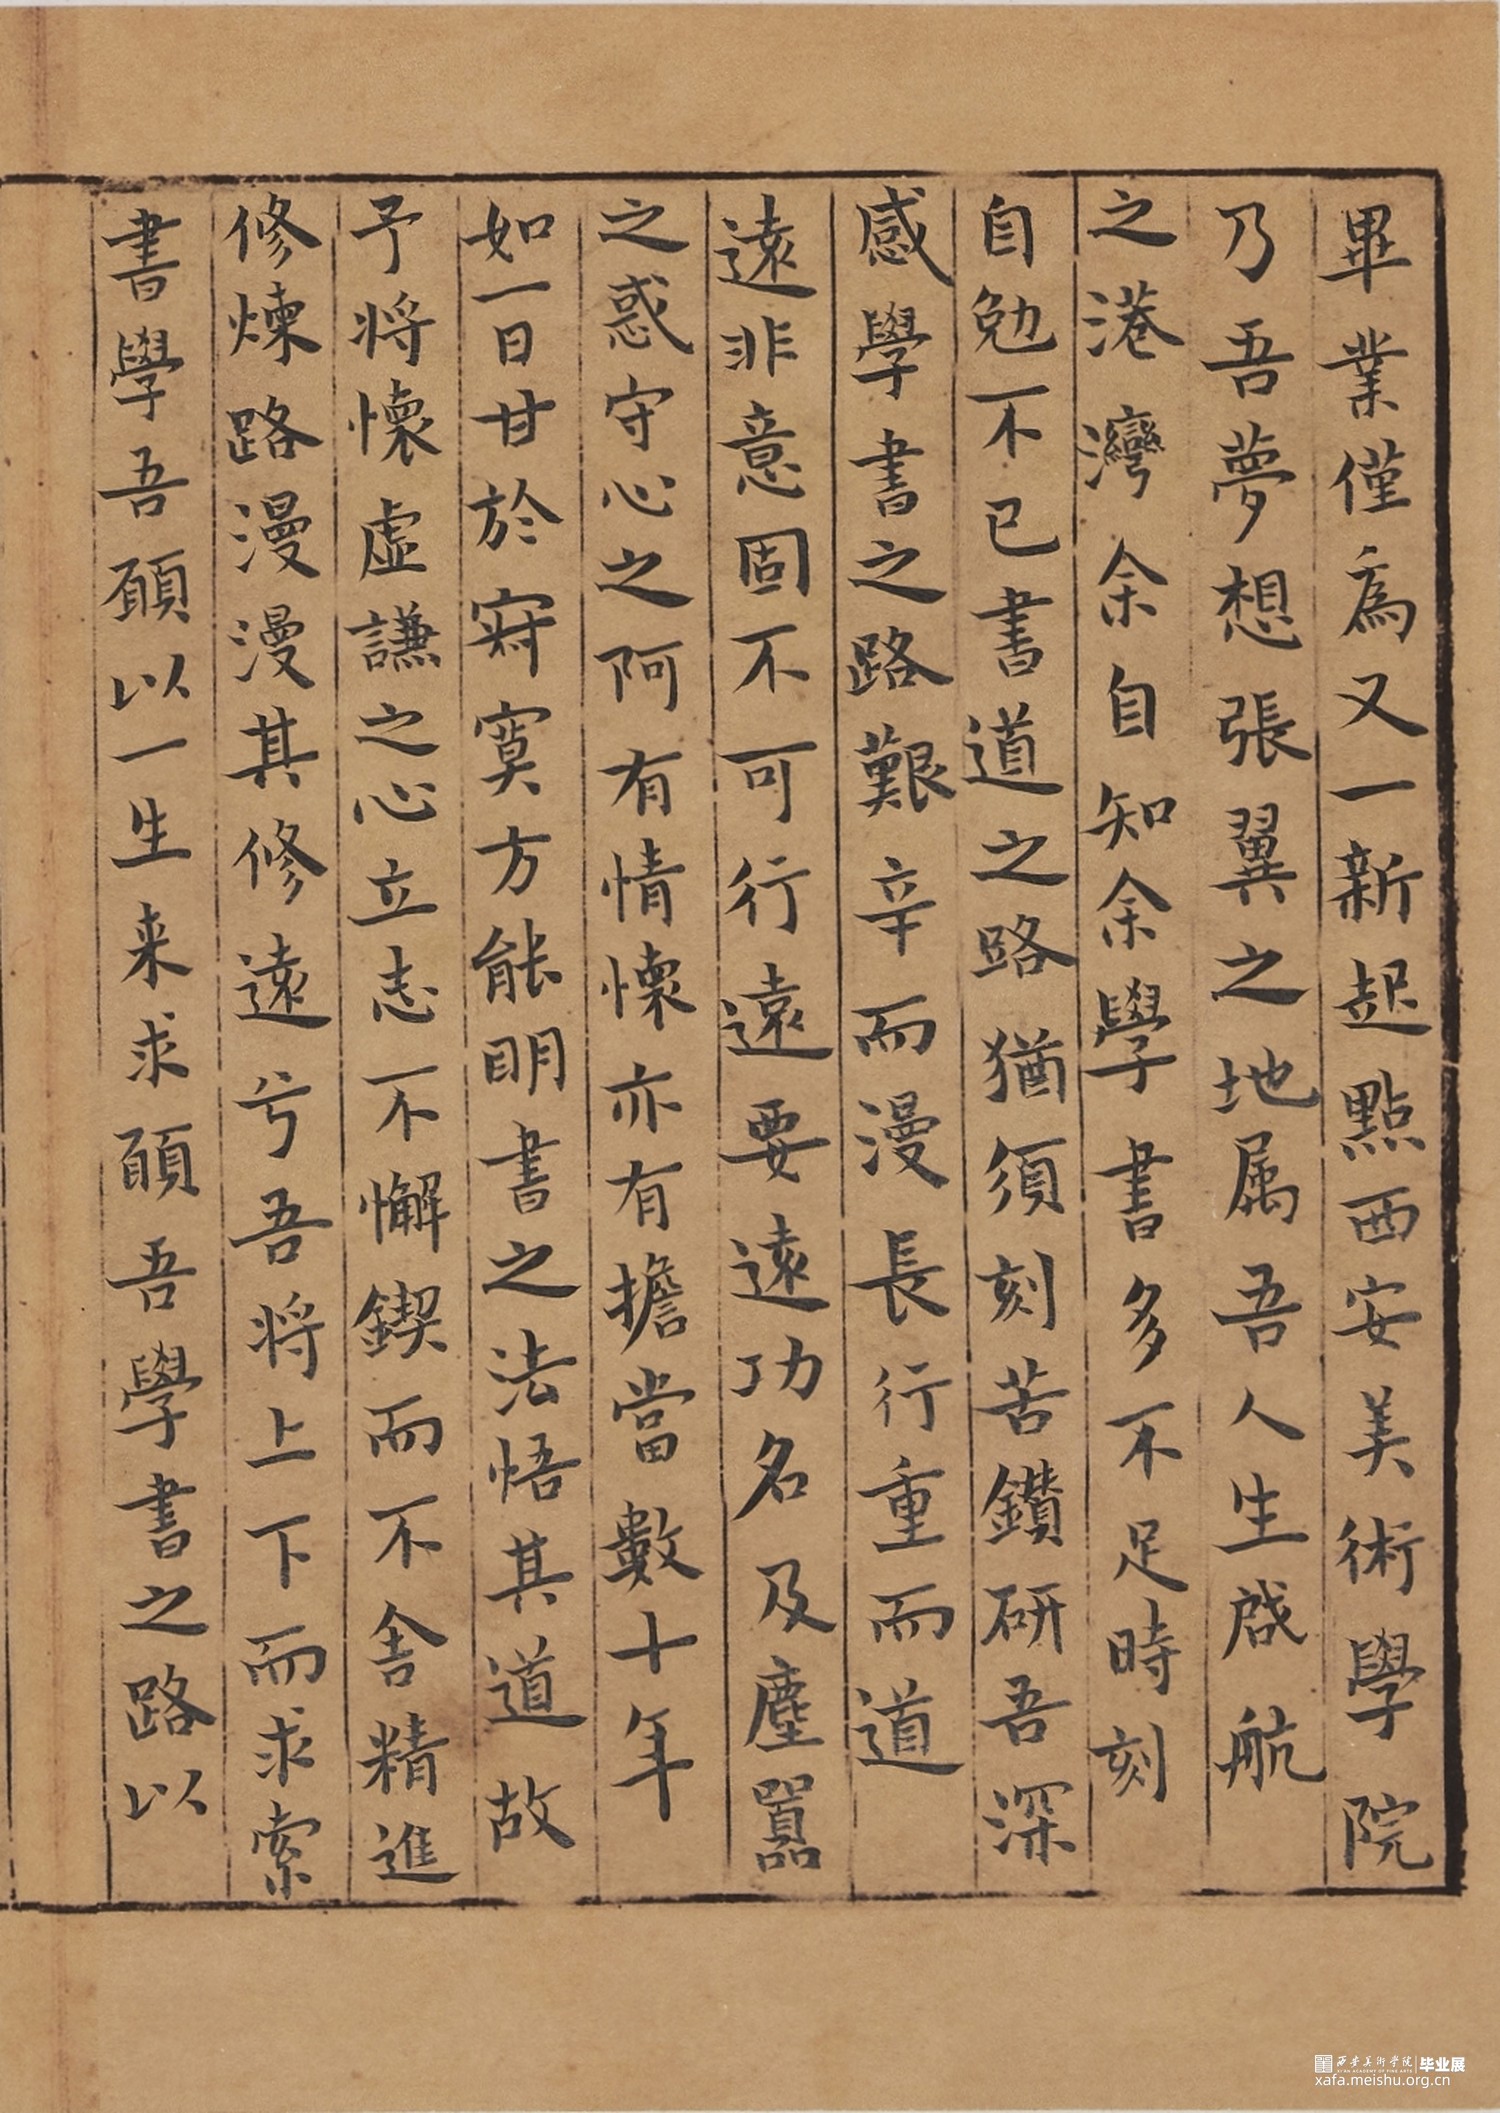 畢業僅為又一新起點西安美術學院
乃吾夢想張翼之地属吾人生啟航
之港灣余自知余學書多不足時刻
自勉不已書道之路猶須刻苦鑽研吾深
感學書之路艱辛而漫長行重而道
遠非意固不可行遠要遠功名及塵囂
之惑守心之阿有情懷亦有擔當數十年
如一日甘於寂寞方能明書之法悟其道故
予将懷虛謙之心立志不懈鍥而不舍精進
修煉路漫漫其修遠兮吾将上下而求索
書學吾願以一生来求願吾學書之路以
西安美術学院 毕业展
XI'AN ACADEMY OF FINE ARTS
xafa.meishu.org.cn